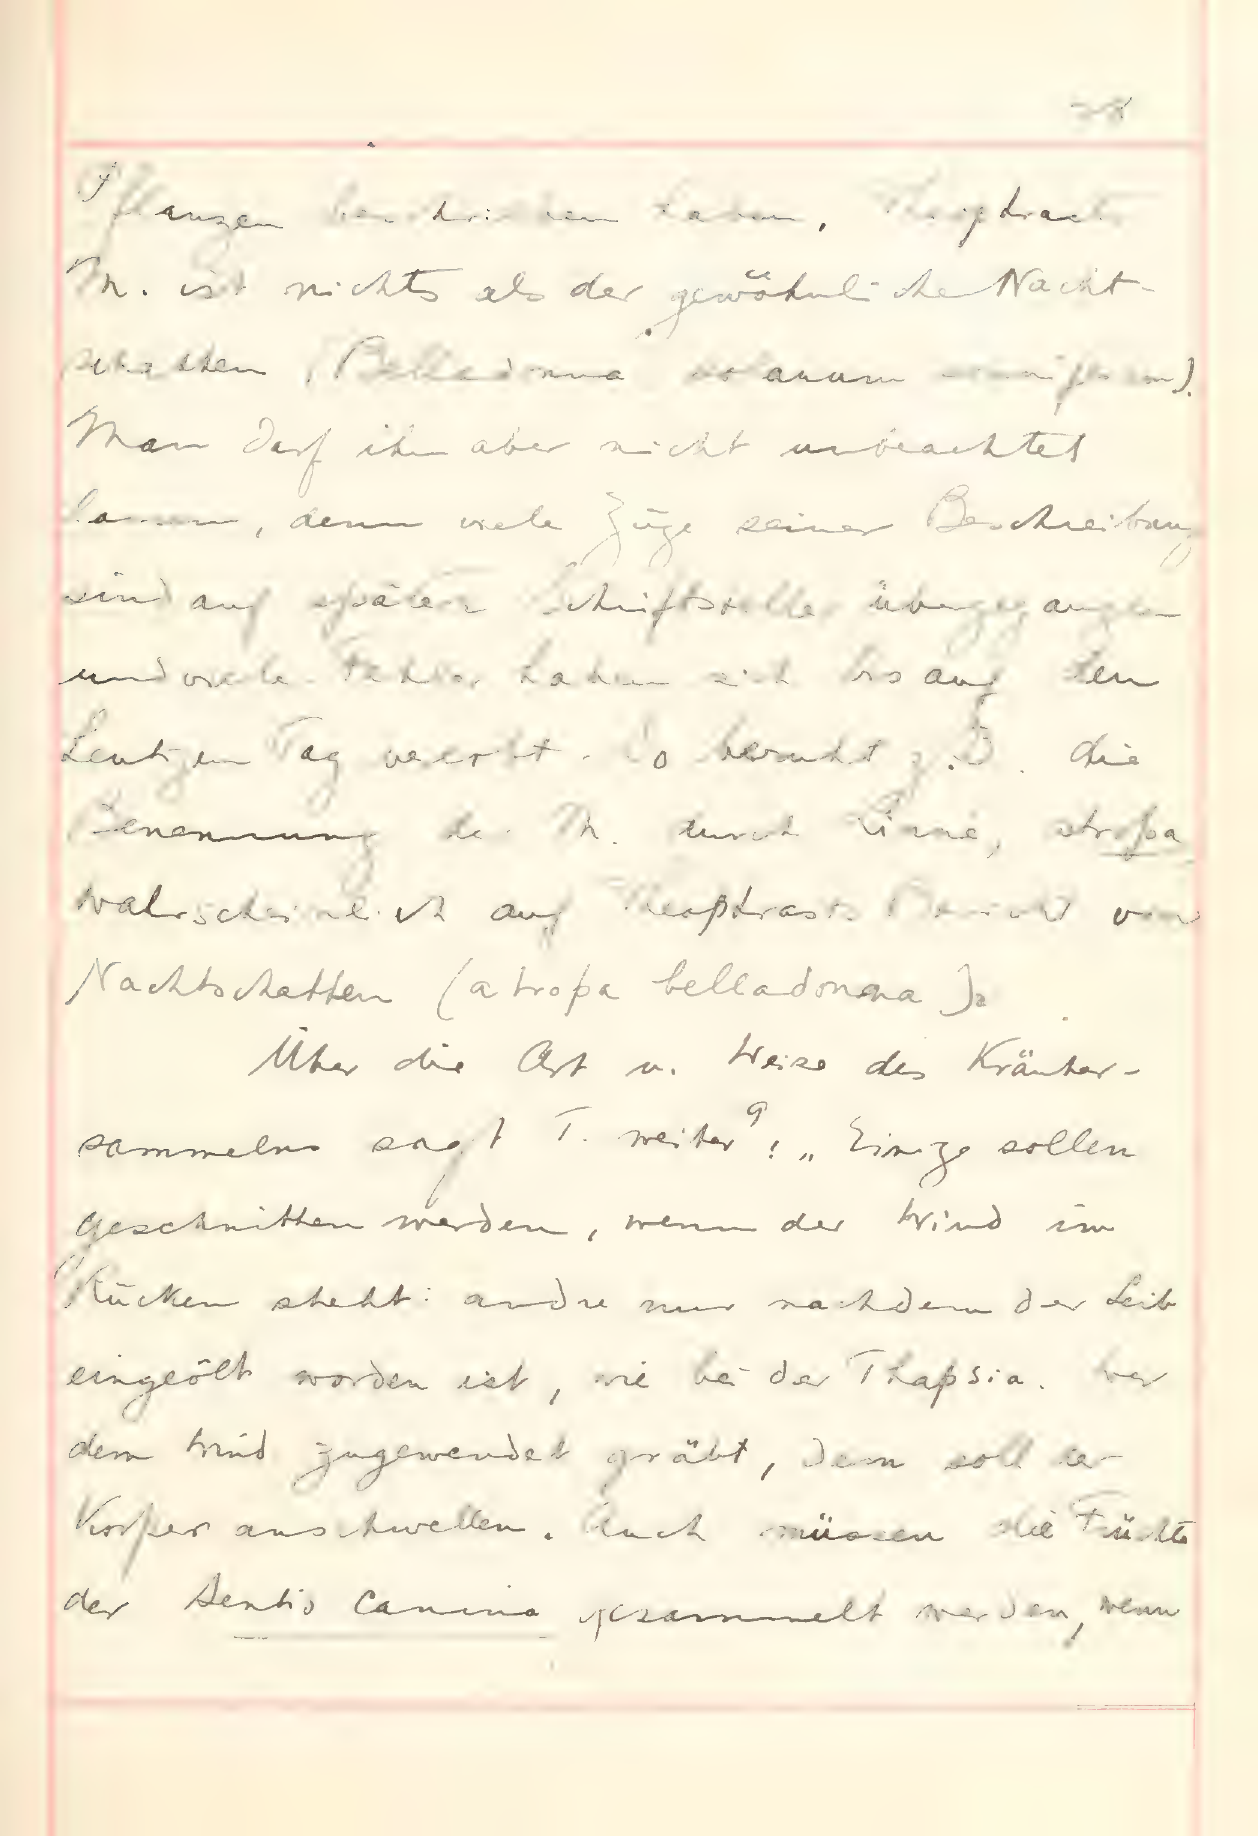 28
Pflanzen beschrieben haben, Theophrasts
M. ist nichts als der gewöhnliche Nacht-
schatten (Belladonna solanum somniferum).
Man darf ihn aber nicht unbeachtet
lassen, denn viele Züge seiner Beschreibung
sind auf spätere Schriftsteller übergegangen
und viele Fehler haben sich bis auf den
heutigen Tag vererbt. So beruht z.B. die
Benennung der M. durch Linné, atropa
wahrscheinlich auf Theophrasts Bericht vom
Nachtschatten (atropa belladonna).
Über die Art u. Weise des Kräuter-
sammelns sagt T. weiter⁹: „Einige sollen
geschnitten werden, wenn der Wind im
Rücken steht: andre nur nachdem der Leib
eingeölt worden ist, wie bei der Thapsia. Wer
dem Wind zugewendet gräbt, dem soll der
Körper anschwellen. Auch müssen die Früchte
der Sentis Canina gesammelt werden, wenn